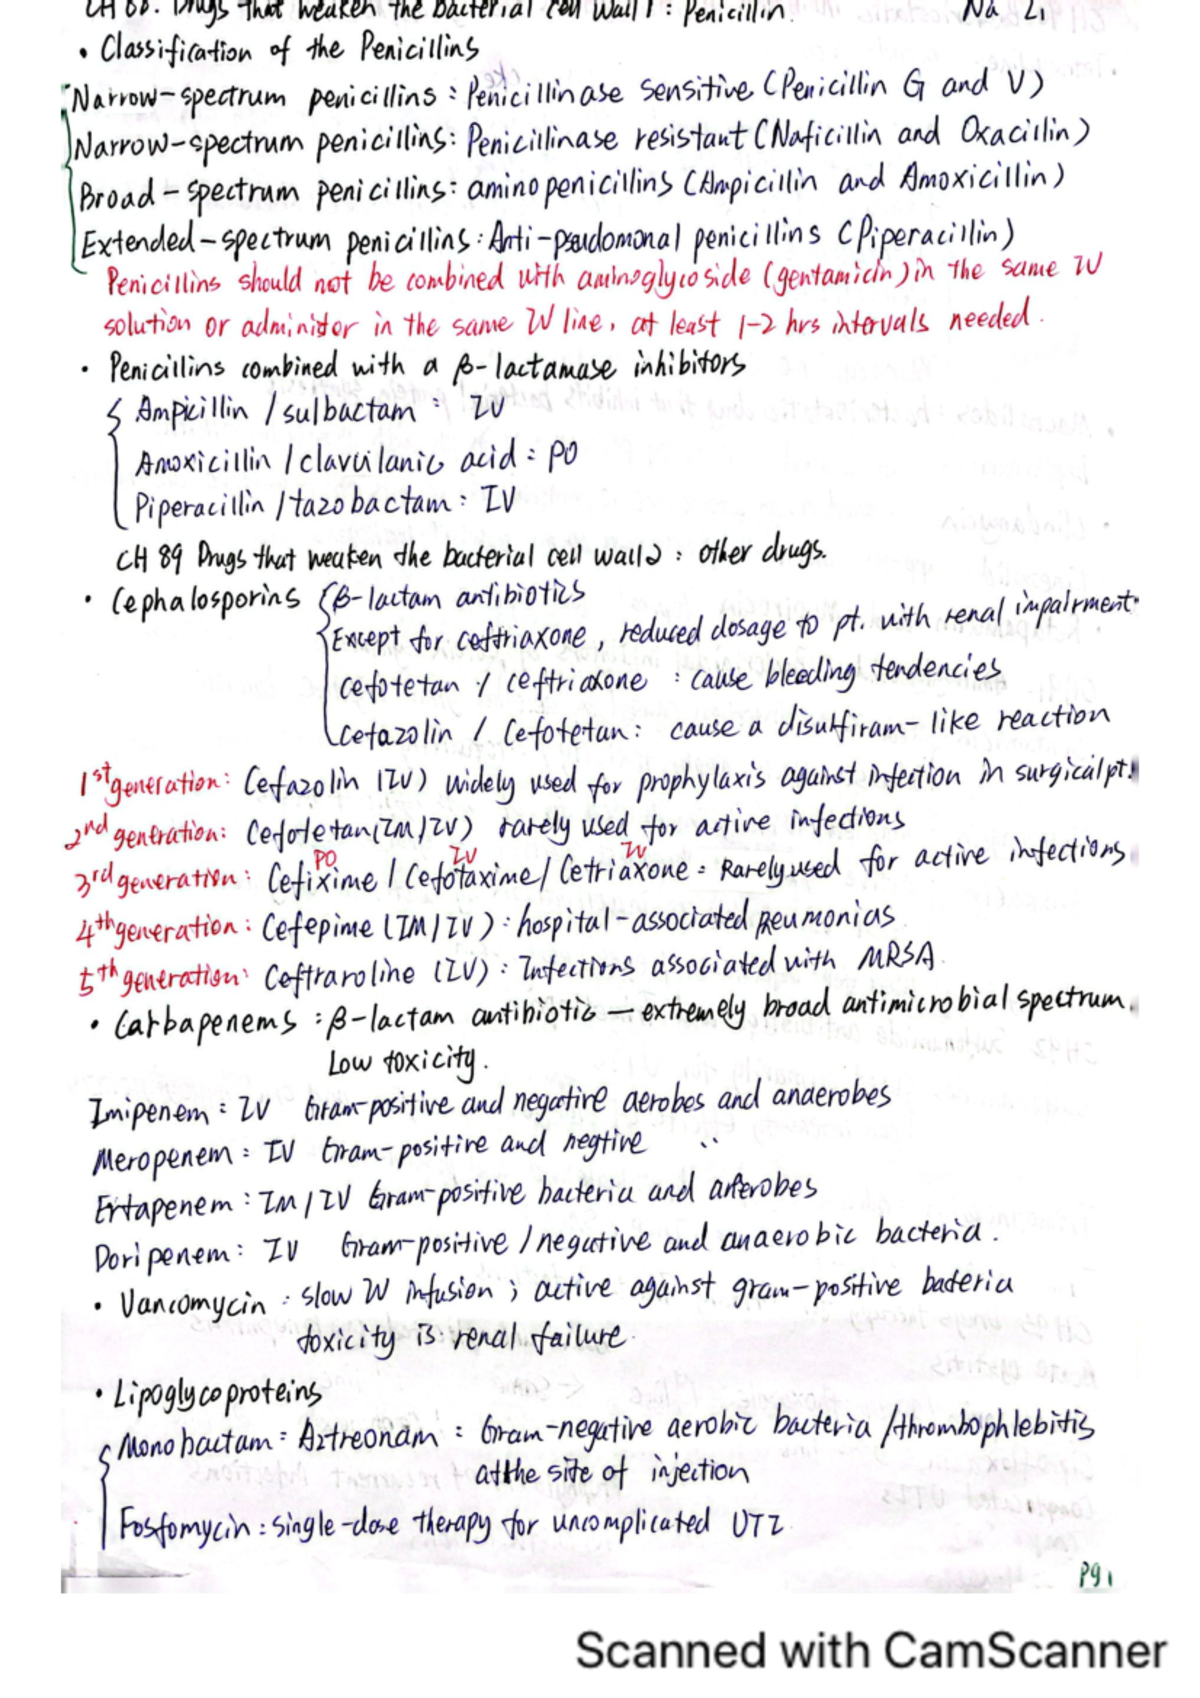 CH 88. Drugs that weaken the bacterial cell wall 1: Penicillin. Na Li
• Classification of the Penicillins
Narrow-spectrum penicillins: Penicillinase sensitive (Penicillin G and V)
Narrow-spectrum penicillins: Penicillinase resistant (Naficillin and Oxacillin)
Broad-spectrum penicillins: aminopenicillins (Ampicillin and Amoxicillin)
Extended-spectrum penicillins: Anti-pseudomonal penicillins (Piperacillin)
Penicillins should not be combined with aminoglycoside (gentamicin) in the same IV
solution or administor in the same IV line, at least 1-2 hrs intervals needed.
• Penicillins combined with a β-lactamase inhibitors
Ampicillin / sulbactam: IV
Amoxicillin / clavulanic acid: PO
Piperacillin / tazobactam: IV
CH 89 Drugs that weaken the bacterial cell wall 2: other drugs.
• Cephalosporins { β-lactam antibiotics
Except for ceftriaxone, reduced dosage to pt. with renal impairment.
Cefotetan / ceftriaxone: cause bleeding tendencies
Cefazolin / Cefotetan: cause a disulfiram-like reaction
1st generation: Cefazolin (IV) widely used for prophylaxis against infection in surgical pt.
2nd generation: Cefotetan (IM/IV) rarely used for active infections
PO IV IV
3rd generation: Cefixime / Cefotaxime / Cetriaxone = Rarely used for active infections
4th generation: Cefepime (IM/IV): hospital-associated peumonias
5th generation: Ceftraroline (IV): Infections associated with MRSA.
• Carbapenems: β-lactam antibiotic — extremely broad antimicrobial spectrum.
Low toxicity.
Imipenem: IV Gram-positive and negative aerobes and anaerobes
Meropenem: IV Gram-positive and negtive ..
Ertapenem: IM/IV Gram-positive bacteria and anerobes
Doripenem: IV Gram-positive / negative and anaerobic bacteria.
• Vancomycin: slow IV infusion; active against gram-positive bacteria
toxicity is renal failure.
• Lipoglycoproteins
Monobactam: Aztreonam: Gram-negative aerobic bacteria / thrombophlebitis
at the site of injection
Fosfomycin: single-dose therapy for uncomplicated UTI
P91
Scanned with CamScanner